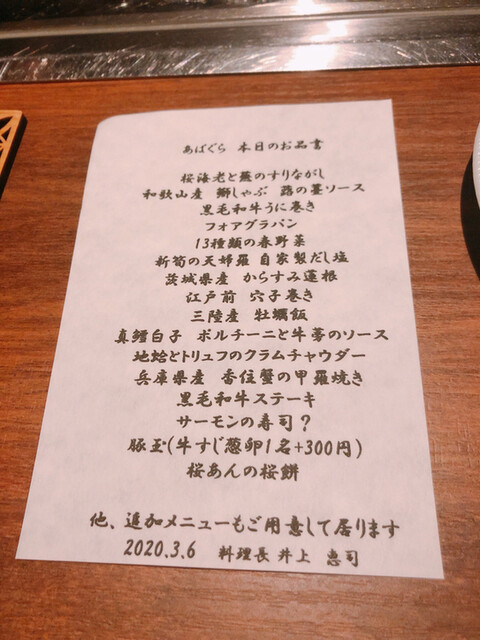 あばぐら 本日のお品書
桜海老と蕪のすりながし
和歌山産 鰤しゃぶ 蕗の薹ソース
黒毛和牛うに巻き
フォアグラパン
13種類の春野菜
新筍の天婦羅 自家製だし塩
茨城県産 からすみ蓮根
江戸前 穴子巻き
三陸産 牡蠣飯
真鱈白子 ポルチーニと牛蒡のソース
地蛤とトリュフのクラムチャウダー
兵庫県産 香住蟹の甲羅焼き
黒毛和牛ステーキ
サーモンの寿司？
豚玉(牛すじ葱卵1名+300円)
桜あんの桜餅
他、追加メニューもご用意して居ります
2020.3.6 料理長 井上 惠司